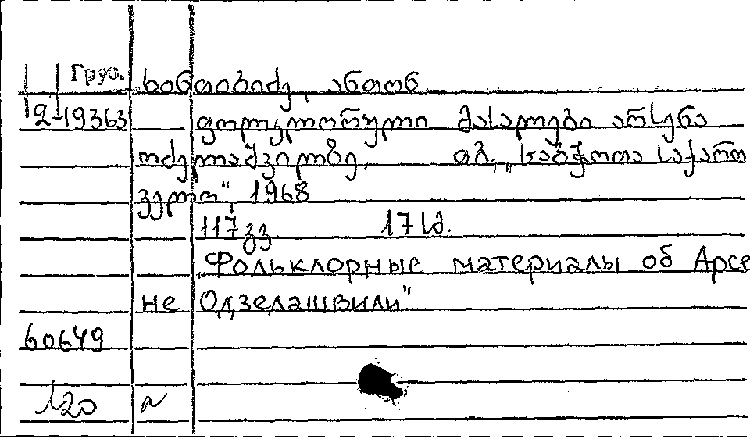 Груз. ხინთიბიძე, ანთონ
2-19363 ფოლკლორული მასალები არსენა
ოძელაშვილზე. თბ., „საბჭოთა საქართ
ველო", 1968
117 გვ 17 სმ.
„Фольклорные материалы об Арсе
не Одзелашвили"
60649
120